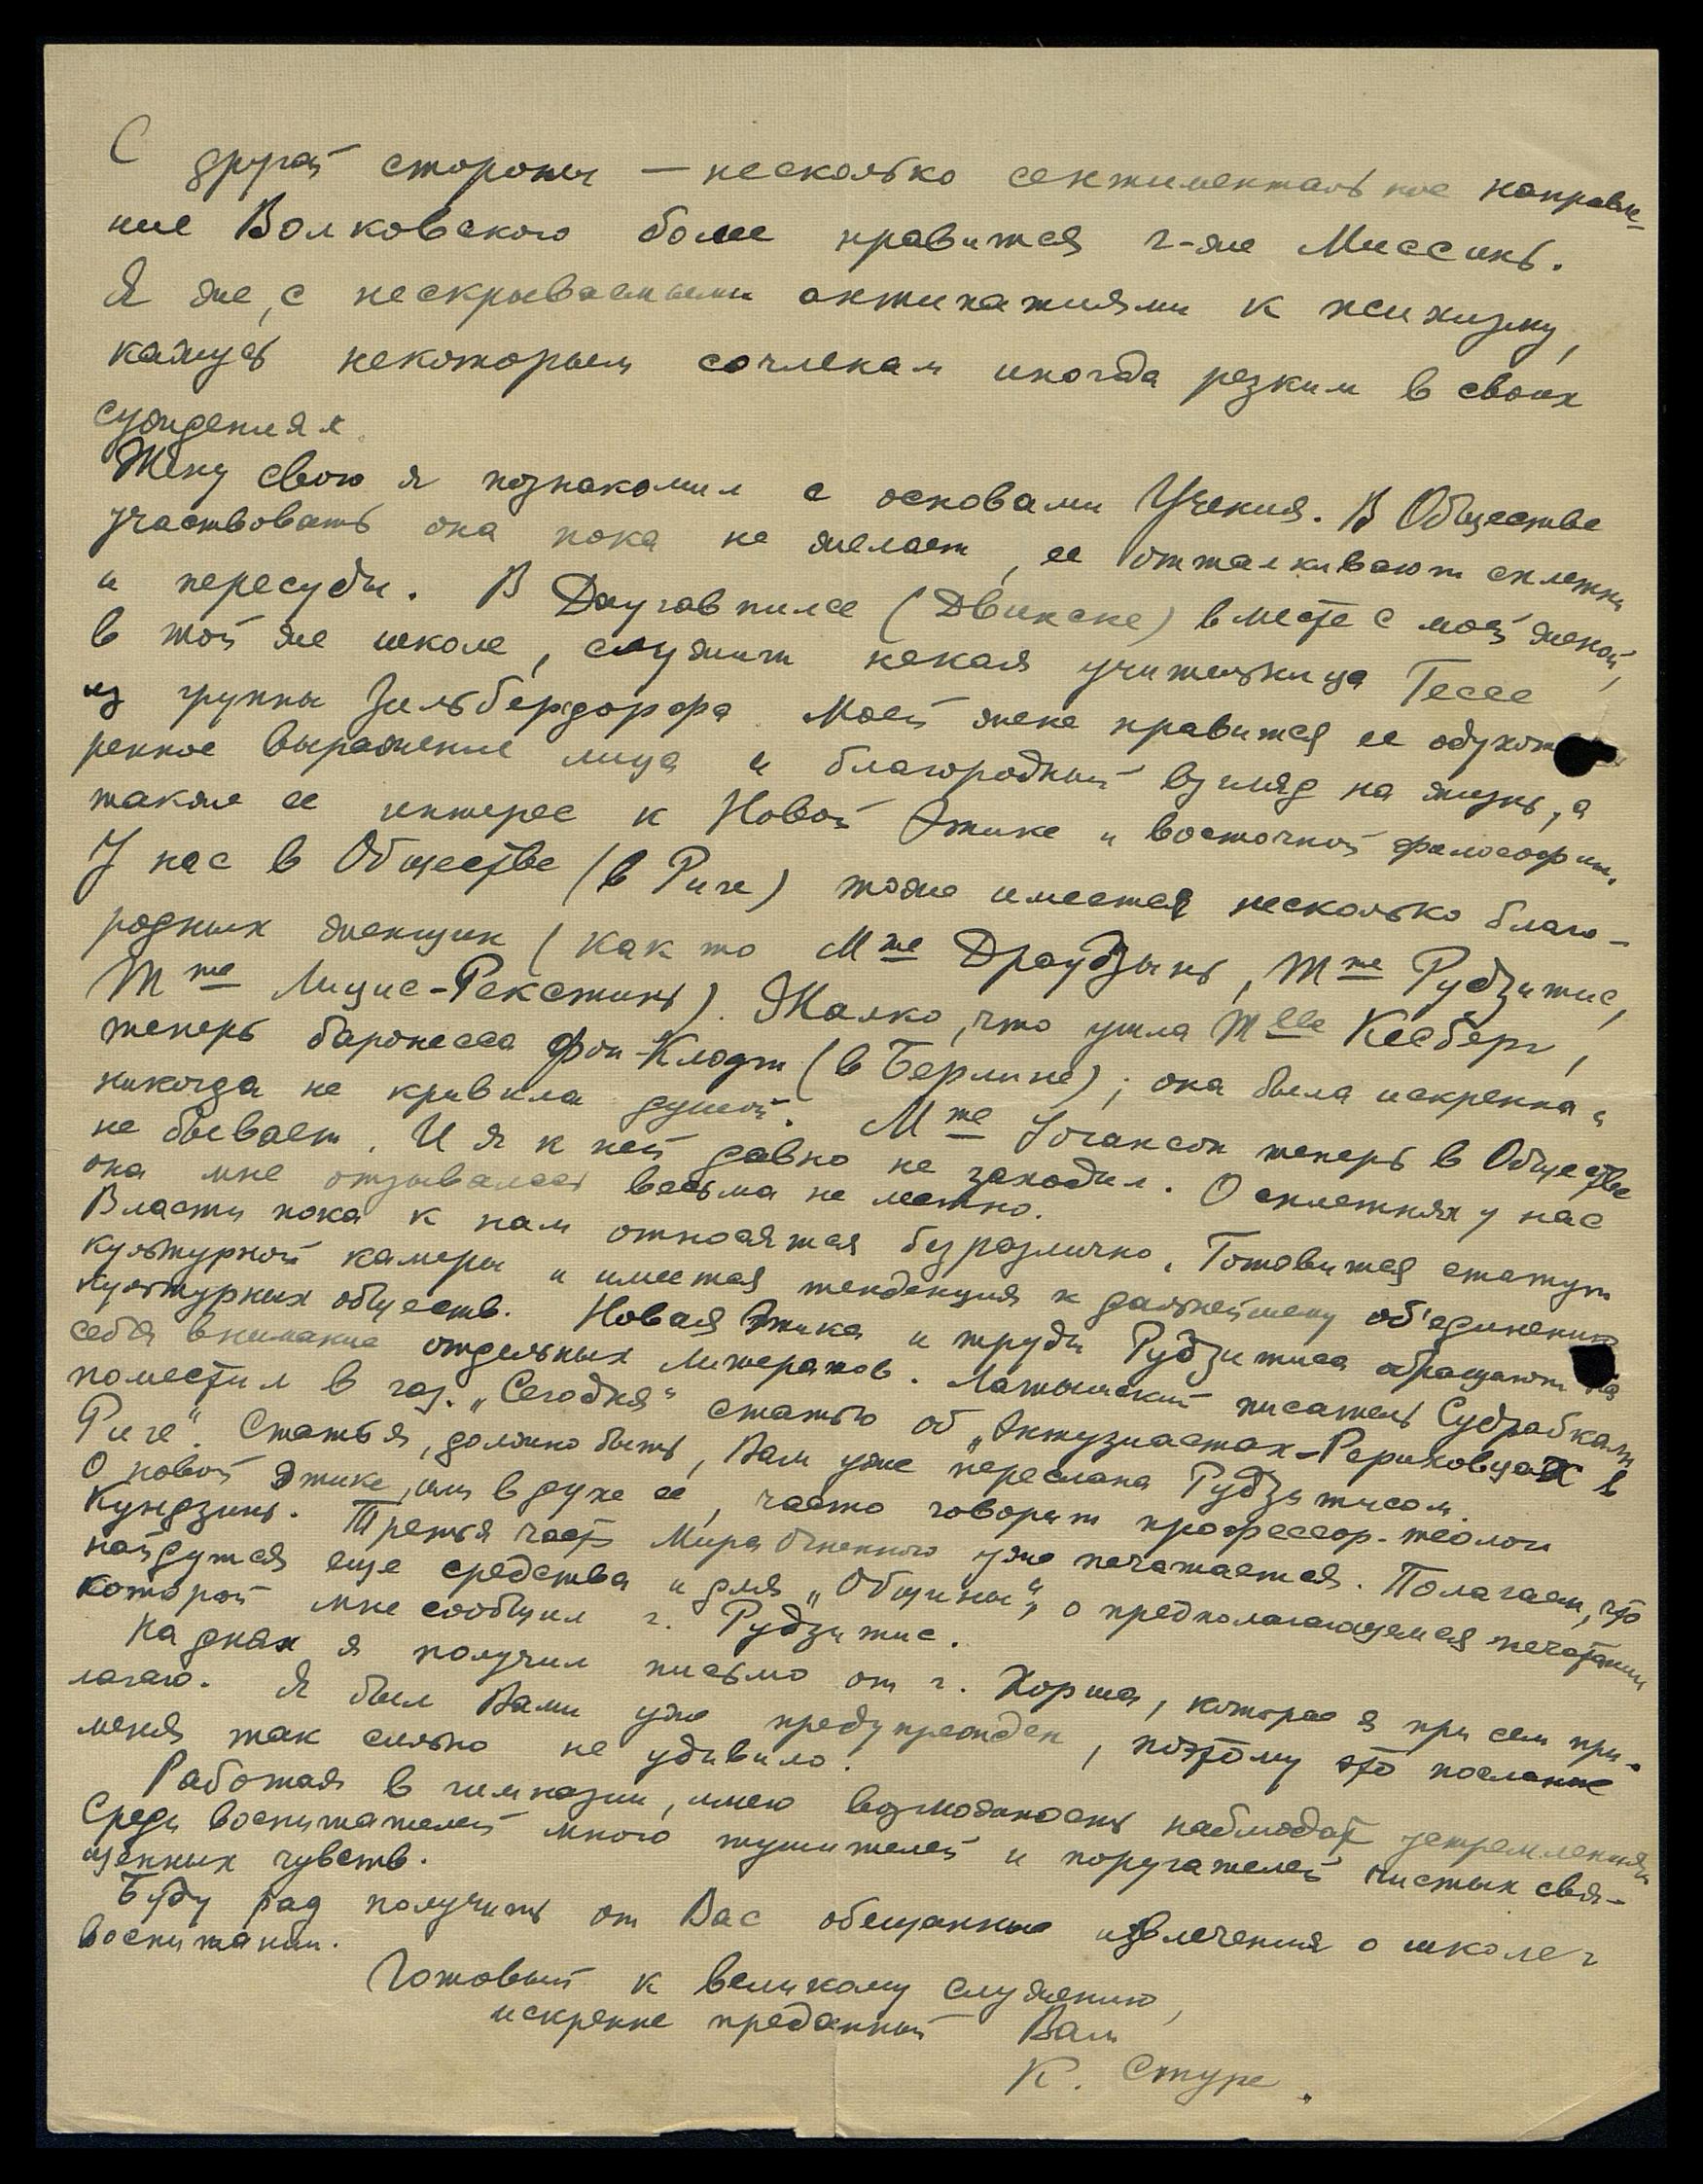 С другой стороны — несколько сентиментальное направле-
ние Волковского более нравится г-же Миссинь.
Я же, с нескрываемыми антипатиями к психизму,
кажусь некоторым сочленам иногда резким в своих
суждениях.
Жену свою я познакомил с основами Учения. В Обществе
участвовать она пока не желает, ее отталкивают сплетни
и пересуды. В Даугавпилсе (Двинске) вместе с моей женой,
в той же школе, служит некая учительница Тессе
из группы Зильбердорфа. Моей жене нравится ее одухотв
ренное выражение лица и благородный взгляд на жизнь, а
также ее интерес к Новой Этике и восточной философии.
У нас в Обществе (в Риге) тоже имеется несколько благо-
родных женщин (как то Mme Драудзынь, Mme Рудзитис,
Mme Лицис-Рекстинь). Жалко, что ушла Mlle Кесберг,
теперь баронесса фон-Клодт (в Берлине); она была искренна и
никогда не кривила душой. Mme Иогансон теперь в Обществе
не бывает. И я к ней давно не заходил. О сплетнях у нас
она мне отзывалась весьма не лестно.
Власти пока к нам относятся безразлично. Готовится статут
культурной камеры и имеется тенденция к дальнейшему об'единению
культурных обществ. Новая Этика и труды Рудзитиса обращают на
себя внимание отдельных литератов. Латышский писатель Судрабкалн
поместил в газ. „Сегодня“ статью об „Энтузиастах-Рериховцах в
Риге“. Статья, должно быть, Вам уже переслана Рудзитисом.
О новой этике, или в духе её, часто говорит профессор-теолог
Кундзинь. Третья часть Мира Огненного уже печатается. Полагаем, что
найдутся еще средства и для „Общины“, о предполагающемся печатании
которой мне сообщил г. Рудзитис.
На днях я получил письмо от г. Хорша, которое я при сем при-
лагаю. Я был Вами уже предупрежден, поэтому это послание
меня так сильно не удивило.
Работая в гимназии, имею возможность наблюдать устремления
Среди воспитателей много тушителей и поругателей чистых свя-
щенных чувств.
Буду рад получить от Вас обещанные извлечения о школе и
воспитании.
Готовый к великому служению,
искренне преданный Вам
К. Стуре.